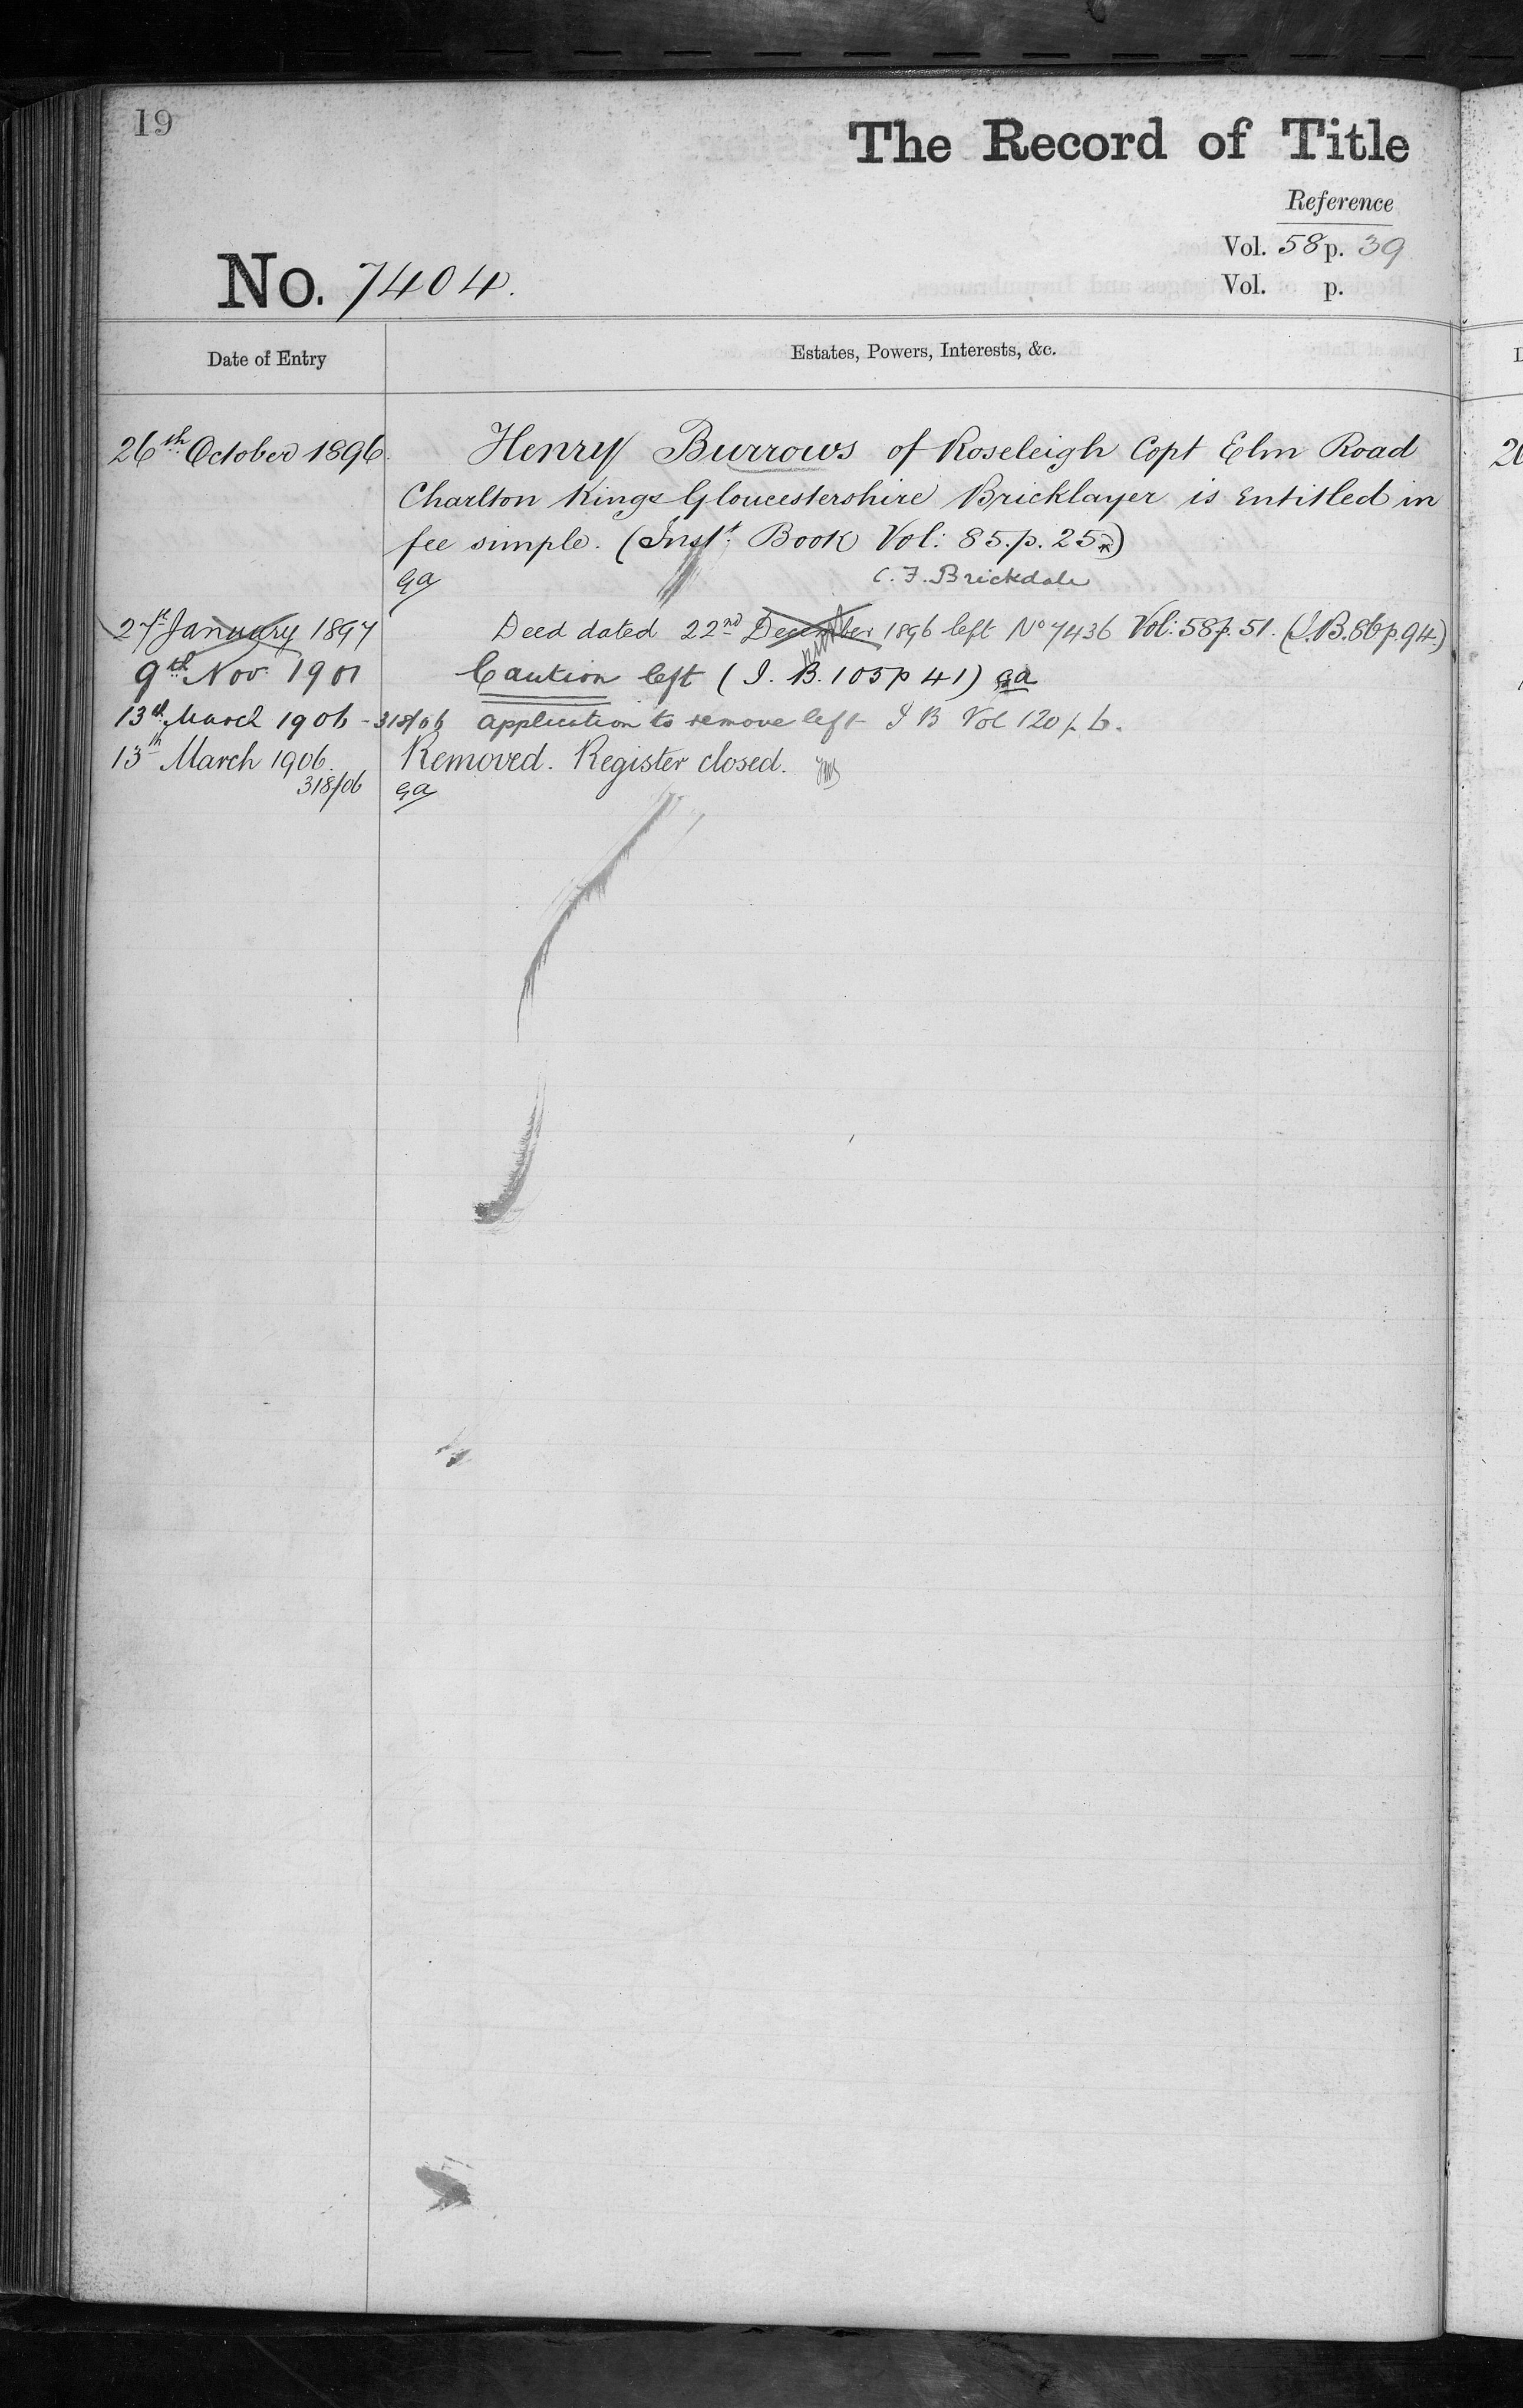 19
The Record of Title
Reference
Vol. 58 p. 39
No. 7404.
Vol. p.
Date of Entry
Estates, Powers, Interests, &c.
26th October 1896. Henry Burrows of Roseleigh Copt Elm Road
Charlton Kings Gloucestershire Bricklayer is Entitled in
fee simple. (Inst. Book Vol: 85. p. 25)
ga C. F. Brickdale
27th January 1897 Deed dated 22nd December 1896 left No 7436 Vol: 58 p. 51. (I.B. 86 p. 94.)
9th Nov. 1901 Caution left (I. B. 105 p 41) ga
13th March 1906 - 318/06 application to remove left I B Vol 120 p. 6.
13th March 1906. Removed. Register closed.
318/06 ga